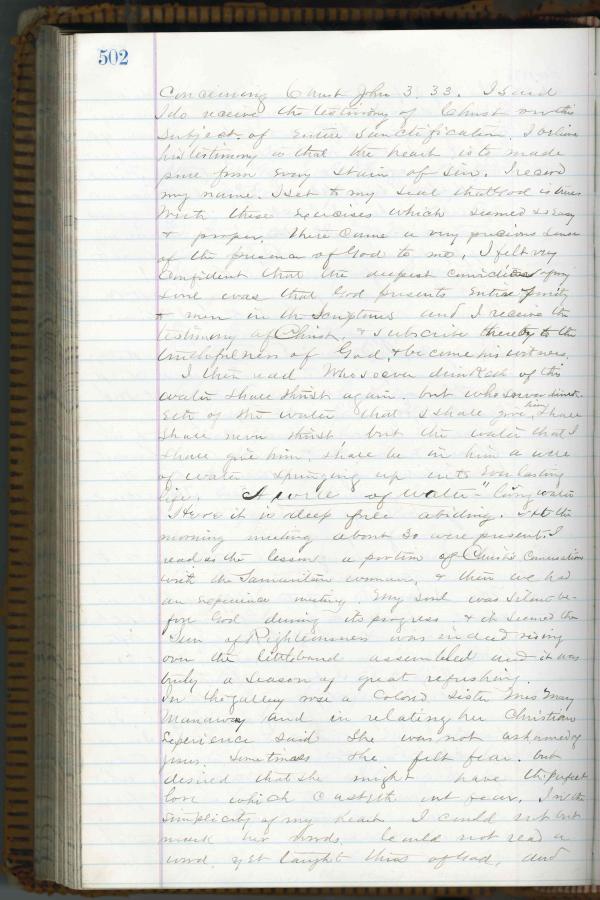 502
Concerning Christ John 3.33. I said
I do receive the testimony of Christ on this
subject of entire sanctification. I believe
his testimony is that the heart is to made
pure from every stain of sin. I record
my name. I set to my seal that God is true
With these exercises which seemed so easy
& proper. There came a very precious sense
of the presence of God to me. I felt very
confident that the deepest conviction of my
soul was that God presents entire purity
to men in the Scriptures and I receive the
testimony of Christ, & subscribe thereby to the
truthfulness of God, & become his witness.
I then read Whosoever drinketh of this
water shall thirst again. but whosoever drink-
eth of the water that I shall give him, shall
shall never thirst but the water that I
shall give him, shall be in him a well
of water springing up into everlasting
life. "A well of water" living water
Here it is deep free abiding. At the
morning meeting about 30 were present. I
read as the lesson a portion of Christ's Conversation
with the Samaritan woman, & then we had
an experience meeting. My soul was silent be-
fore God during its progress & it seemed the
Sun of Righteousness was indeed rising
over the little band assembled and it was
truly a season of great refreshing.
In the gallery rose a Colored Sister Mrs Mary
Manaway and in relating her Christian
experience said she was not ashamed of
Jesus. Sometimes she felt fear. but
desired that she might have the perfect
love which casteth out fear. In the
simplicity of my heart I could not but
mark her words. Could not read a
word, yet taught thus of God, and